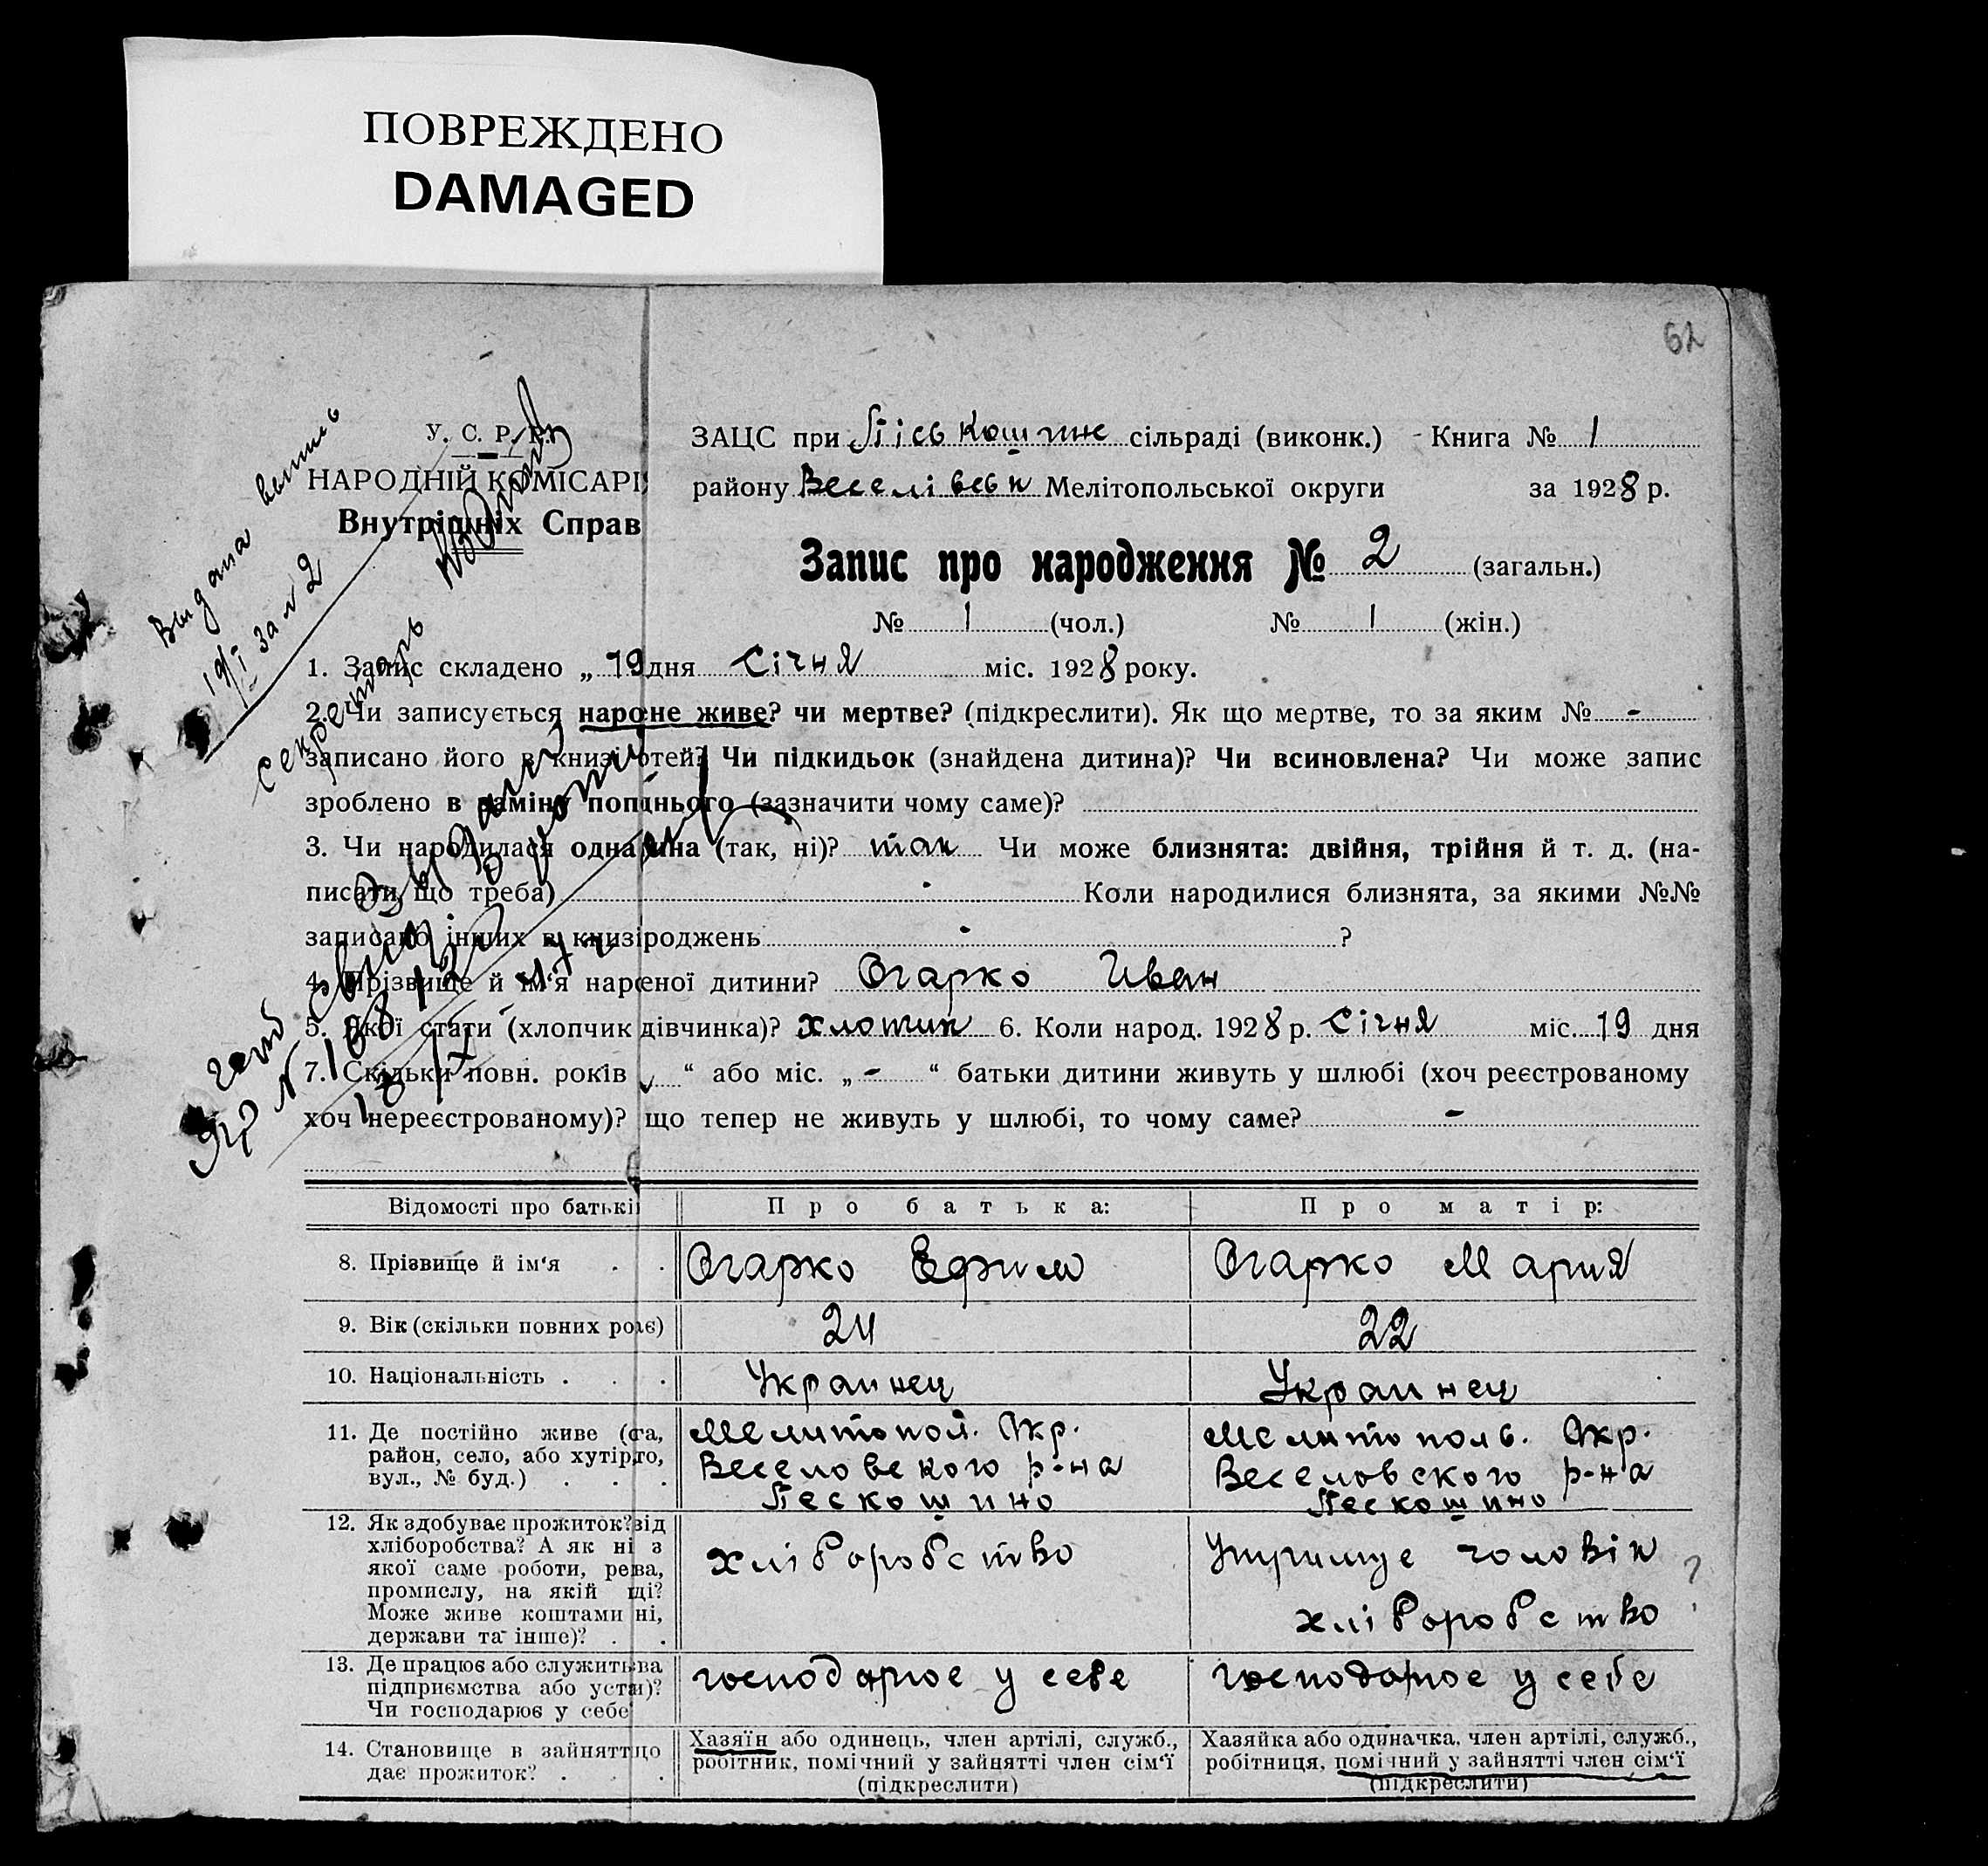 ПОВРЕЖДЕНО
DAMAGED
62
У. С. Р. Р.
НАРОДНІЙ КОМІСАРІ
Внутрішніх Справ
Выдана выпись
19/I за № 2
секретарь
ЗАЦС при Піськошине сільраді (виконк.) - Книга № 1
району Веселівськ Мелітопольської округи за 1928 р.
Запис про народження № 2 (загальн.)
№ 1 (чол.) № 1 (жін.)
1. Запис складено „ 19 дня Січня міс. 1928 року.
2. Чи записується наро не живе? чи мертве? (підкреслити). Як що мертве, то за яким № -
записано його в книзі ртей? Чи підкидьок (знайдена дитина)? Чи всиновлена? Чи може запис
зроблено в заміну поп днього (зазначити чому саме)?
3. Чи народилася одна ина (так, ні)? так Чи може близнята: двійня, трійня й т. д. (на-
писати, що треба) Коли народилися близнята, за якими №№
записано інших в книзі роджень ?
4. Прізвище й ім‘я нар еної дитини? Огарко Иван
5. Якої стати (хлопчик дівчинка)? хлопчик 6. Коли народ. 1928 р. Січня міс. 19 дня
7. Скільки повн. років “ або міс. „ - “ батьки дитини живуть у шлюбі (хоч реєстрованому
хоч нереєстрованому)? що тепер не живуть у шлюбі, то чому саме? -
Відомості про батькі Про батька: Про матір:
8. Прізвище й ім‘я . . Огарко Ефим Огарко Мария
9. Вік (скільки повних ро є) 24 22
10. Національність . . . Украинец Украинец
11. Де постійно живе ( а, Мелитопол. Окр. Мелитополь. Окр.
район, село, або хутір, о, Веселовского р-на Веселовского р-на
вул., № буд.) . . . Пескошино Пескошино
12. Як здобуває прожиток? від
хліборобства? А як ні з хліборобство Утримує чоловік ?
якої саме роботи, ре ва,
промислу, на якій ді?
Може живе коштами ні, хліборобство
держави та інше)? . .
13. Де працює або служить ва господарює у себе господарює у себе
підприємства або уст и)?
Чи господарює у себе
14. Становище в занятт що Хазяїн або одинець, член артілі, служб., Хазяйка або одиначка, член артілі, служб.,
дає прожиток? . . робітник, помічний у зайнятті член сім‘ї робітниця, помічний у зайнятті член сім‘ї
(підкреслити) (підкреслити)